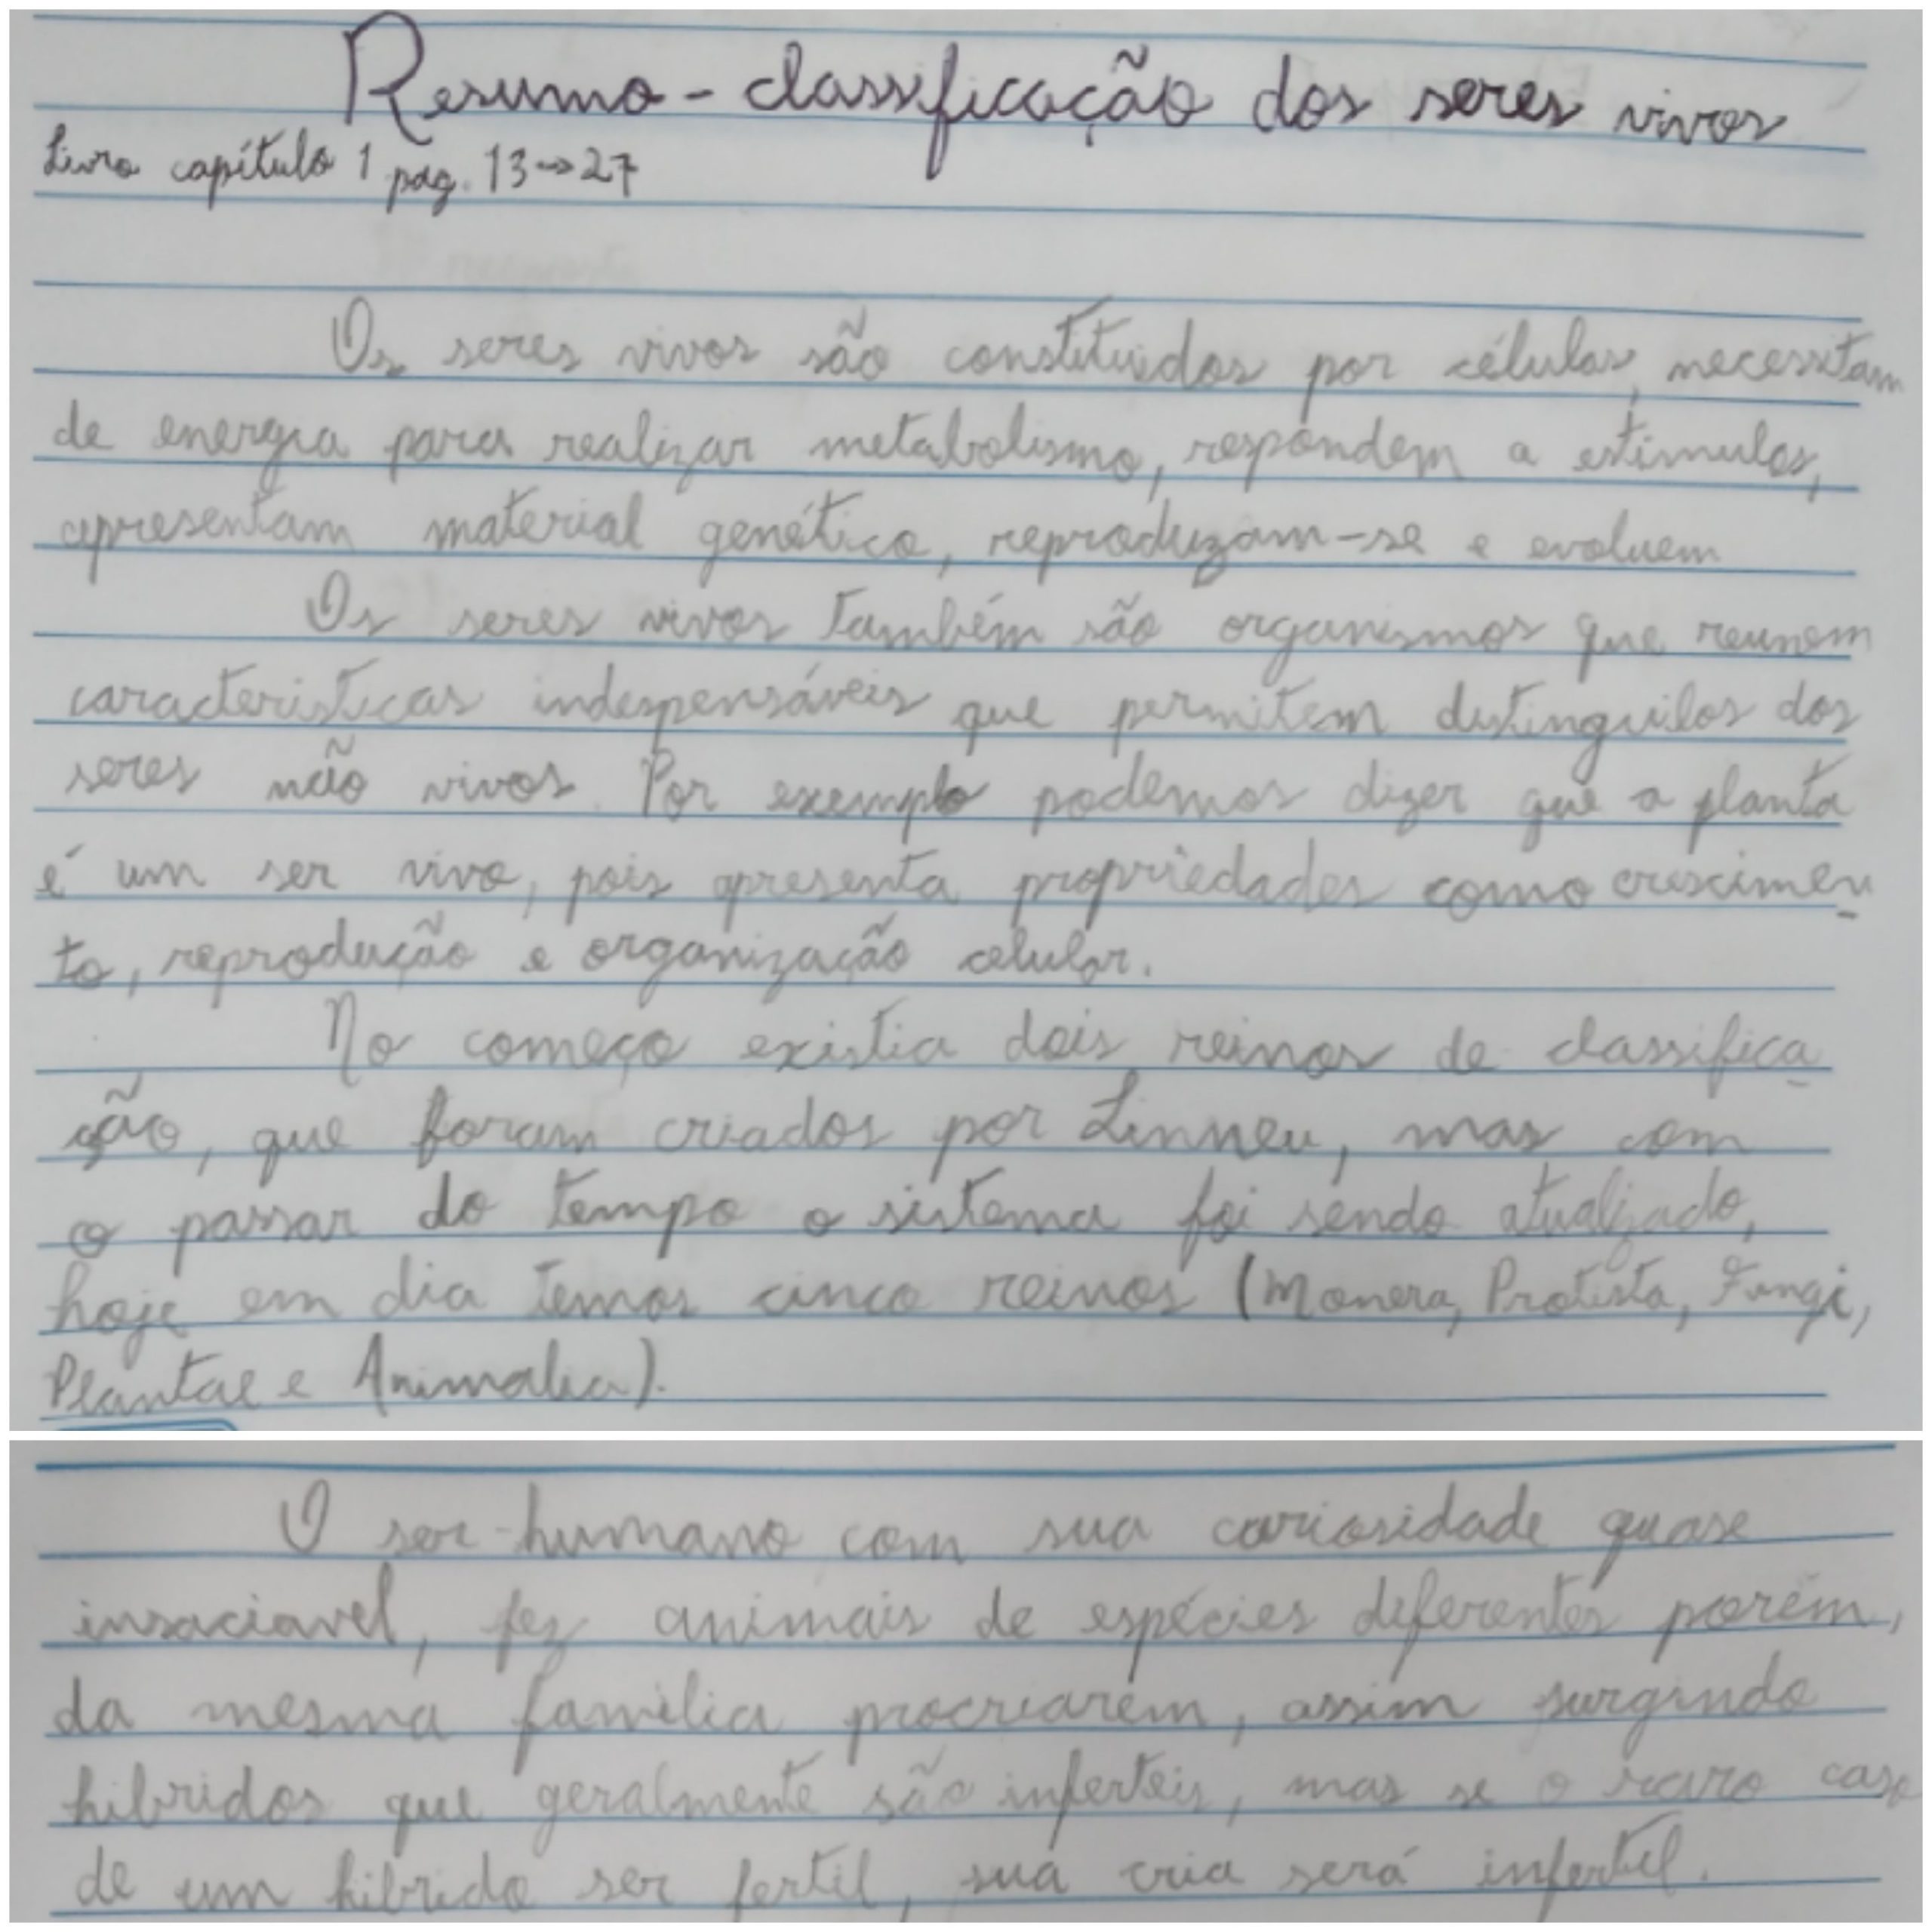 Resumo - classificação dos seres vivos
Livro capítulo 1 pág. 13→27
Os seres vivos são constituidos por células, necessitam
de energia para realizar metabolismo, respondem a estimulos,
apresentam material genético, reproduzam-se e evoluem
Os seres vivos também são organismos que reunem
caracteristicas indespensáveis que permitem distinguilos dos
seres não vivos. Por exemplo podemos dizer que a planta
é um ser vivo, pois apresenta propriedades como crescimen
to, reprodução e organização celular.
No começo existia dois reinos de classifica
ção, que foram criados por Linneu, mas com
o passar do tempo o sistema foi sendo atualizado,
hoje em dia temos cinco reinos (Monera, Protista, Fungi,
Plantae e Animalia).
O ser-humano com sua curiosidade quase
insaciavel, fez animais de espécies diferentes porém,
da mesma família procriarem, assim surgindo
hibridos que geralmente são inferteis, mas se o raro caso
de um hibrido ser fertil, sua cria será infertil.